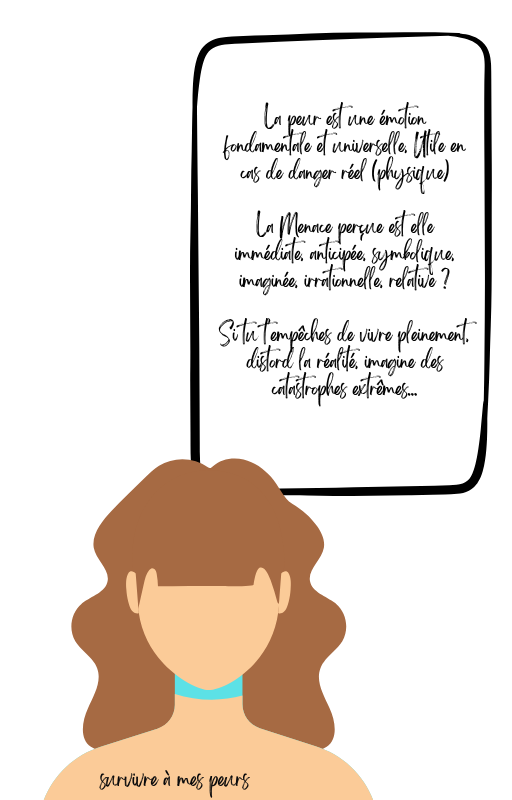 La peur est une émotion
fondamentale et universelle. Utile en
cas de danger réel (physique)
La Menace perçue est elle
immédiate, anticipée, symbolique,
imaginée, irrationnelle, relative ?
Si tu t'empêches de vivre pleinement,
distord la réalité, imagine des
catastrophes extrêmes...
survivre à mes peurs